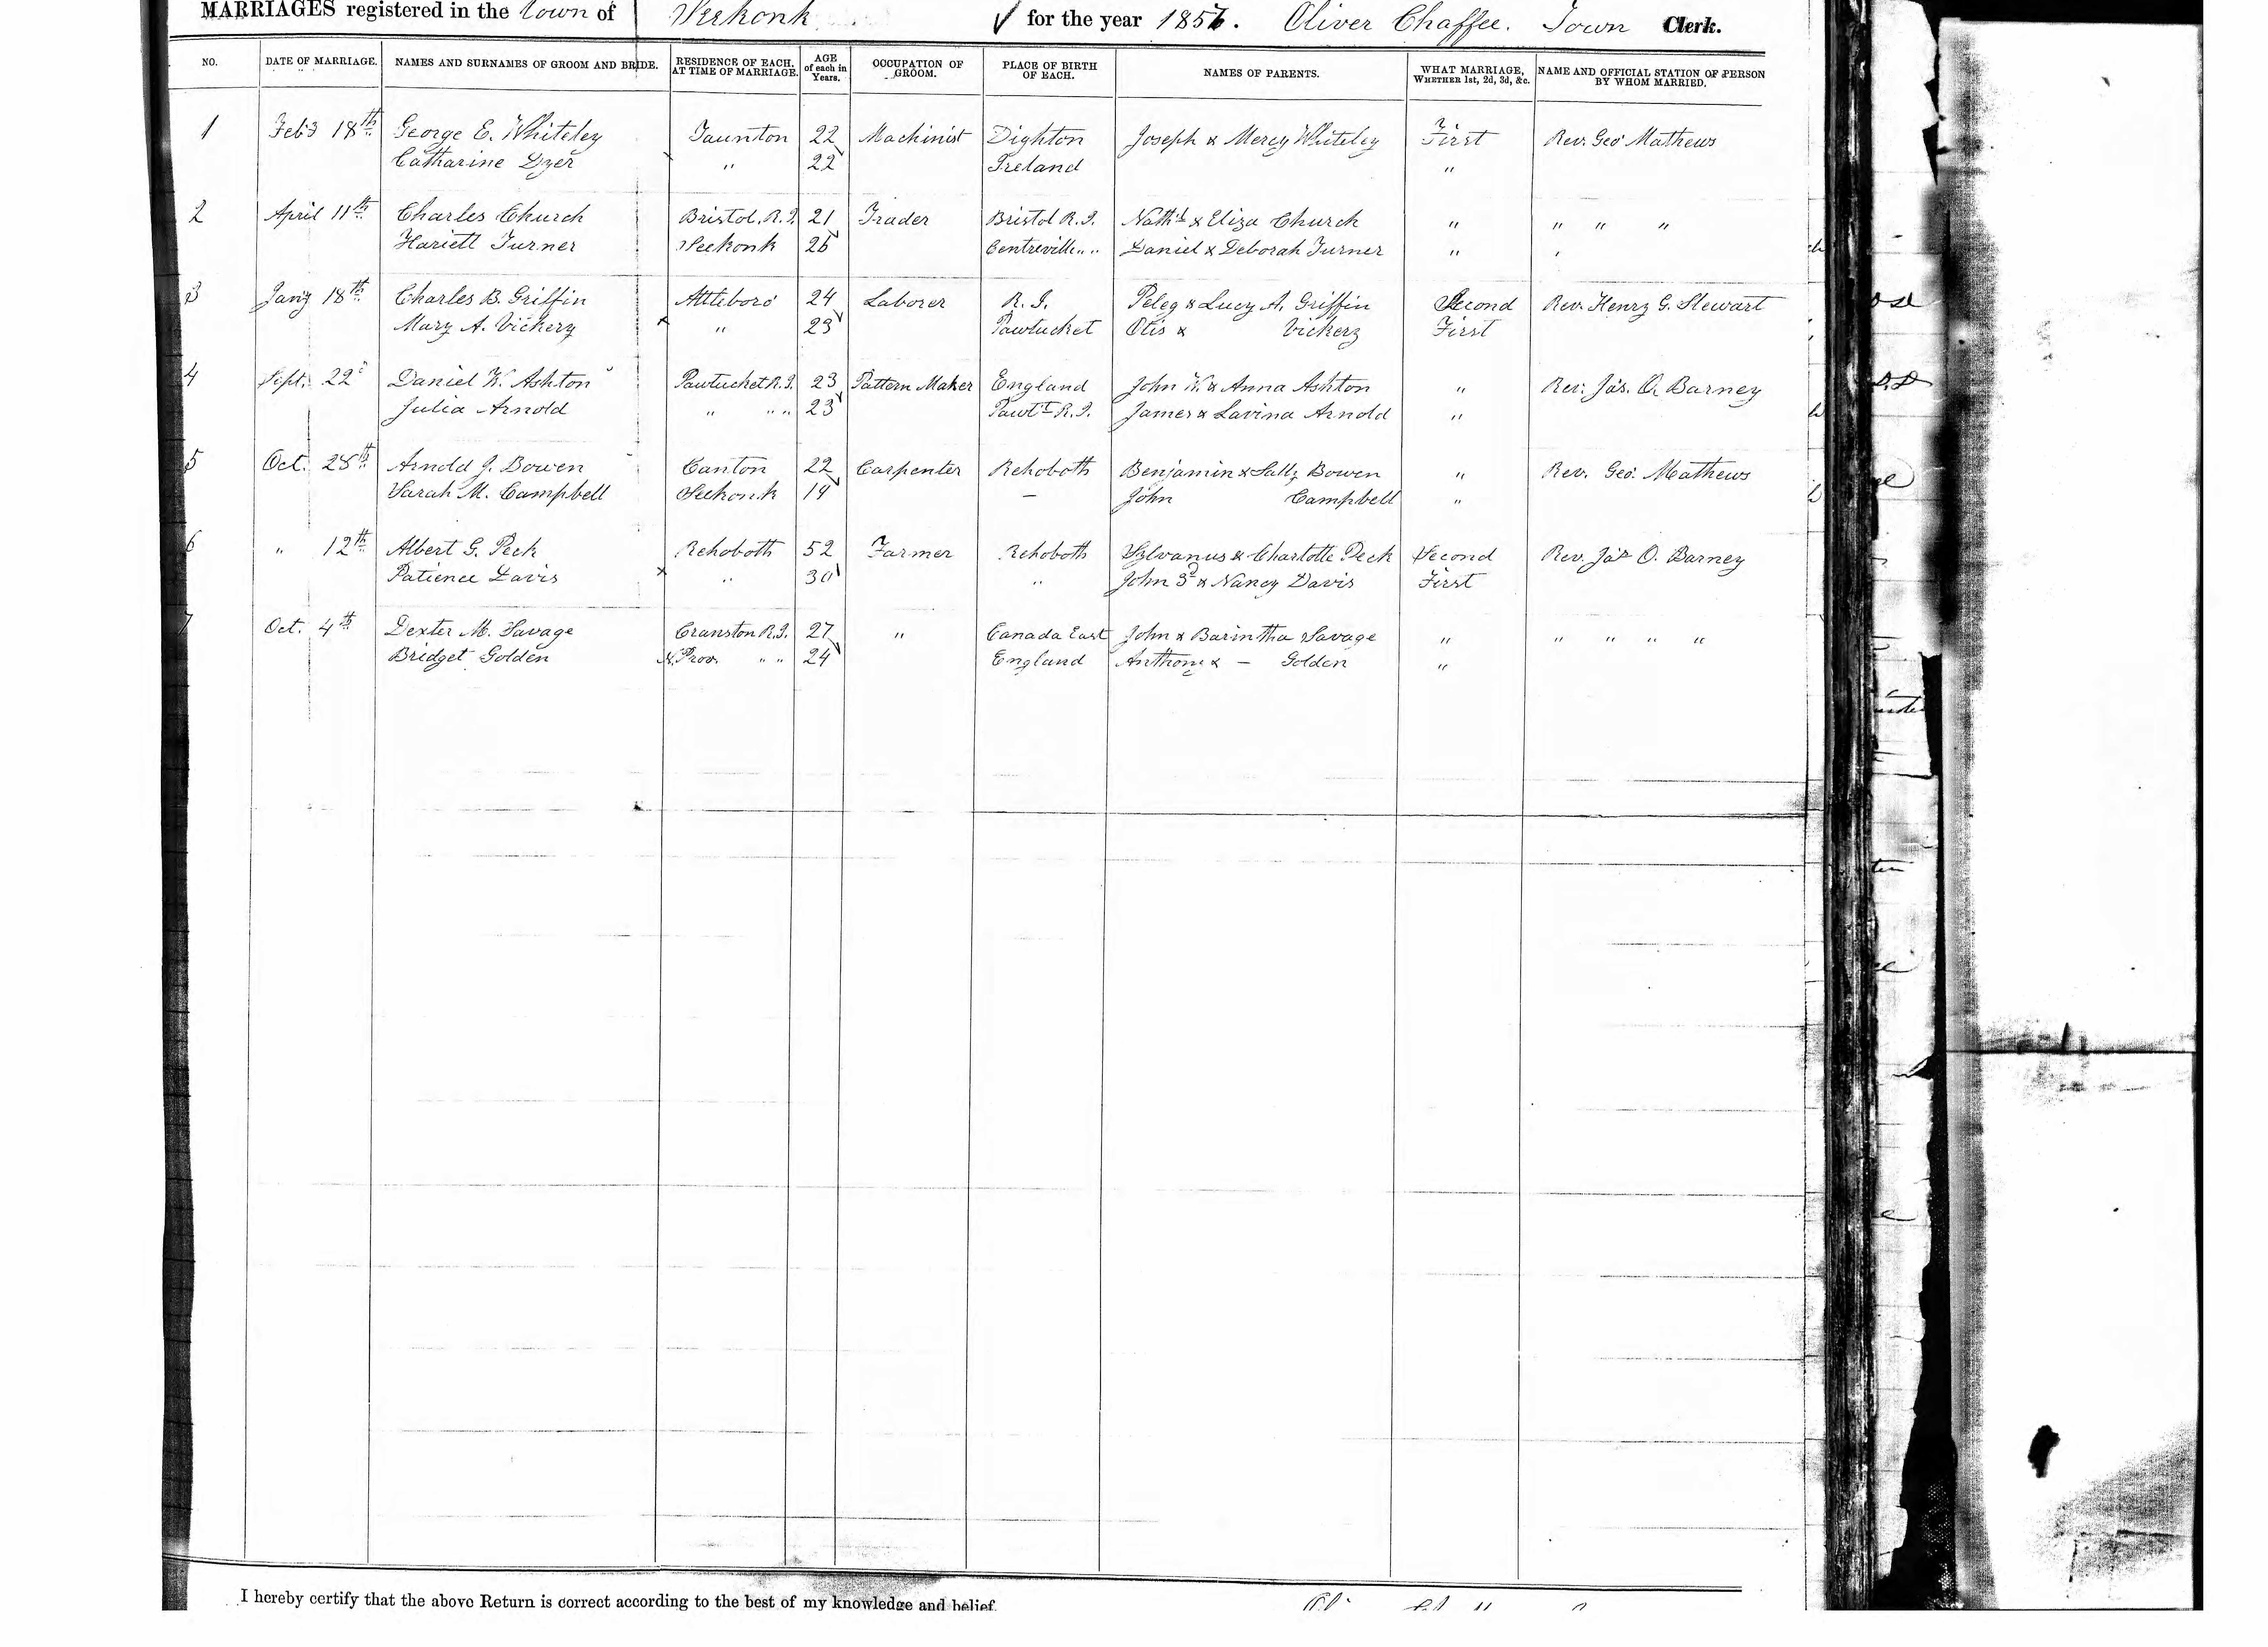 MARRIAGES registered in the Town of Seekonk for the year 1856. Oliver Chaffee. Town Clerk.
NO. DATE OF MARRIAGE. NAMES AND SURNAMES OF GROOM AND BRIDE. RESIDENCE OF EACH, AT TIME OF MARRIAGE. AGE of each in Years. OCCUPATION OF GROOM. PLACE OF BIRTH OF EACH. NAMES OF PARENTS. WHAT MARRIAGE, WHETHER 1st, 2d, 3d, &c. NAME AND OFFICIAL STATION OF PERSON BY WHOM MARRIED.
1 Feb'y 18th George E. Whiteley Taunton 22 Machinist Dighton Joseph & Mercy Whiteley First Rev. Geo Mathews
Catharine Dyer " 22 Ireland "
2 April 11th Charles Church Bristol, R.I. 21 Trader Bristol R.I. Nathl & Eliza Church " " " "
Hariett Turner Seekonk 26 Centreville " " Daniel & Deborah Turner "
3 Jan'y 18th Charles B. Griffin Attleboro' 24 Laborer R.I. Peleg & Lucy A. Griffin Second Rev. Henry G. Stewart
Mary A. Vickery " 23 Pawtucket Otis & Vickery First
4 Sept. 22d Daniel W. Ashton Pawtucket R.I. 23 Pattern Maker England John W. & Anna Ashton " Rev. Jas. O. Barney
Julia Arnold " " " 23 Pawtt R.I. James & Lavina Arnold "
5 Oct. 28th Arnold J. Bowen Canton 22 Carpenter Rehoboth Benjamin & Sally Bowen " Rev. Geo. Mathews
Sarah M. Campbell Seekonk 19 – John Campbell "
6 " 12th Albert G. Peck Rehoboth 52 Farmer Rehoboth Sylvanus & Charlotte Peck Second Rev. Jas O. Barney
Patience Davis " 30 " John 3d & Nancy Davis First
7 Oct. 4th Dexter M. Savage Cranston R.I. 27 " Canada East John & Barintha Savage " " " " "
Bridget Golden N. Prov. " " 24 England Anthony & – Golden "
I hereby certify that the above Return is correct according to the best of my knowledge and belief.